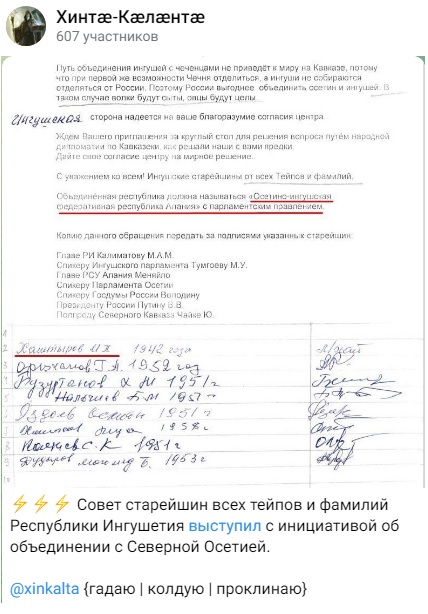 Хинтӕ-Кӕлӕнтӕ
607 участников
Путь объединения ингушей с чеченцами не приведёт к миру на Кавказе, потому
что при первой же возможности Чечня отделиться, а ингуши не собираются
отделяться от России. Поэтому России выгоднее объединить осетин и ингушей. В
таком случае волки будут сыты, овцы будут целы.
Ингушская сторона надеется на ваше благоразумие согласия центра.
Ждем Вашего приглашения за круглый стол для решения вопроса путём народной
дипломатии по Кавказски, как решали наши с вами предки.
Дайте свое согласие центру на мирное решение.
С уважением ко всем! Ингушские старейшины от всех Тейпов и фамилий.
Объединённая республика должна называться «Осетино-ингушская
федеративная республика Алания» с парламентским правлением.
Копию данного обращения передать за подписями указанных старейшин:
Главе РИ Калиматову М.А.М.
Спикеру Ингушского парламента Тумгоеву М.У.
Главе РСУ Алания Меняйло
Спикеру Парламента Осетии
Спикеру Госдумы России Володину
Президенту России Путину В.В.
Полпреду Северного Кавказа Чайке Ю.
2 Хаштыров 1942 года
3 Г.А. 1952 год
4 Х М 1951г
5 Б.М 1951г
1951г
1958г
8 С.К 1951г
9 1953г
⚡⚡⚡ Совет старейшин всех тейпов и фамилий
Республики Ингушетия выступил с инициативой об
объединении с Северной Осетией.
@xinkalta {гадаю | колдую | проклинаю}